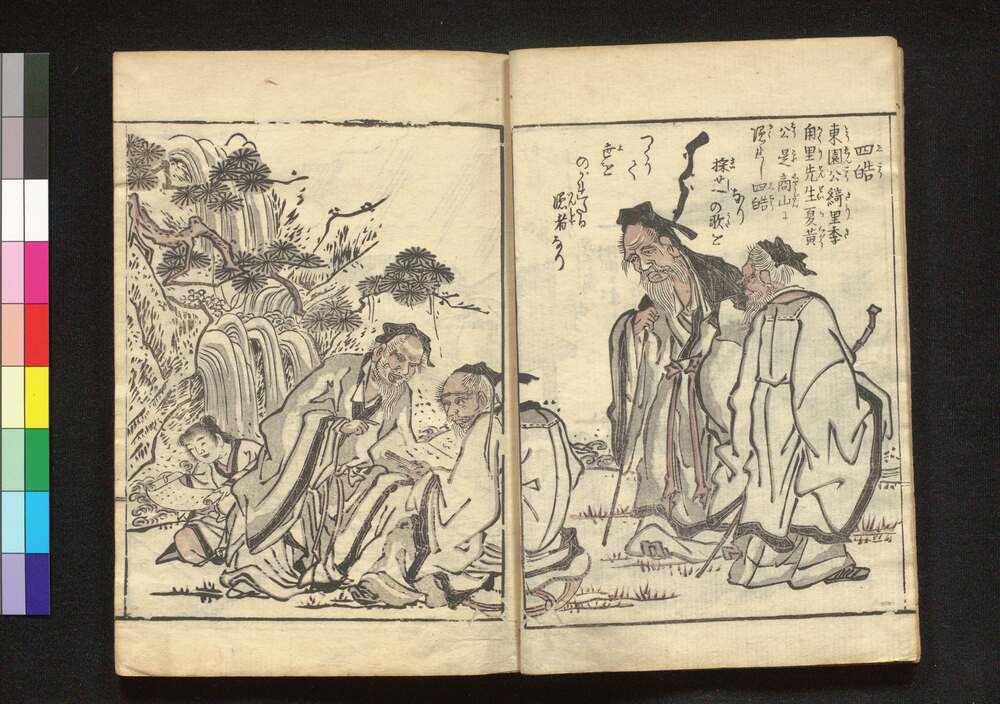 四皓
東園公綺里季
甪里先生夏黄
公是商山に
隠れし四皓
なり
採芝の歌を
つくりて
世を
のがれたる
隠者なり